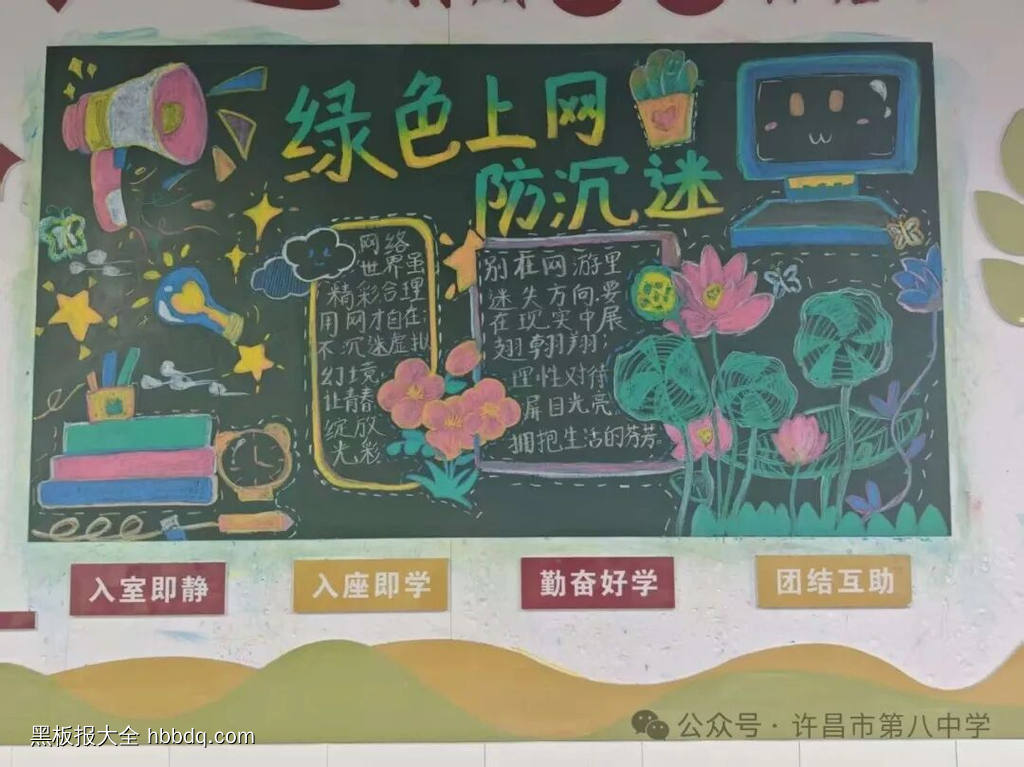 绿色上网
防沉迷
网络
世界虽
精彩合理
用网才自在;
不沉迷虚拟
幻境,
让青春
绽放
光彩
别在网游里
迷失方向.要
在现实中展
翅翱翔;
理性对待
屏目光亮,
拥抱生活的芬芳。
入室即静
入座即学
勤奋好学
团结互助
公众号·许昌市第八中学
黑板报大全 hbbdq.com